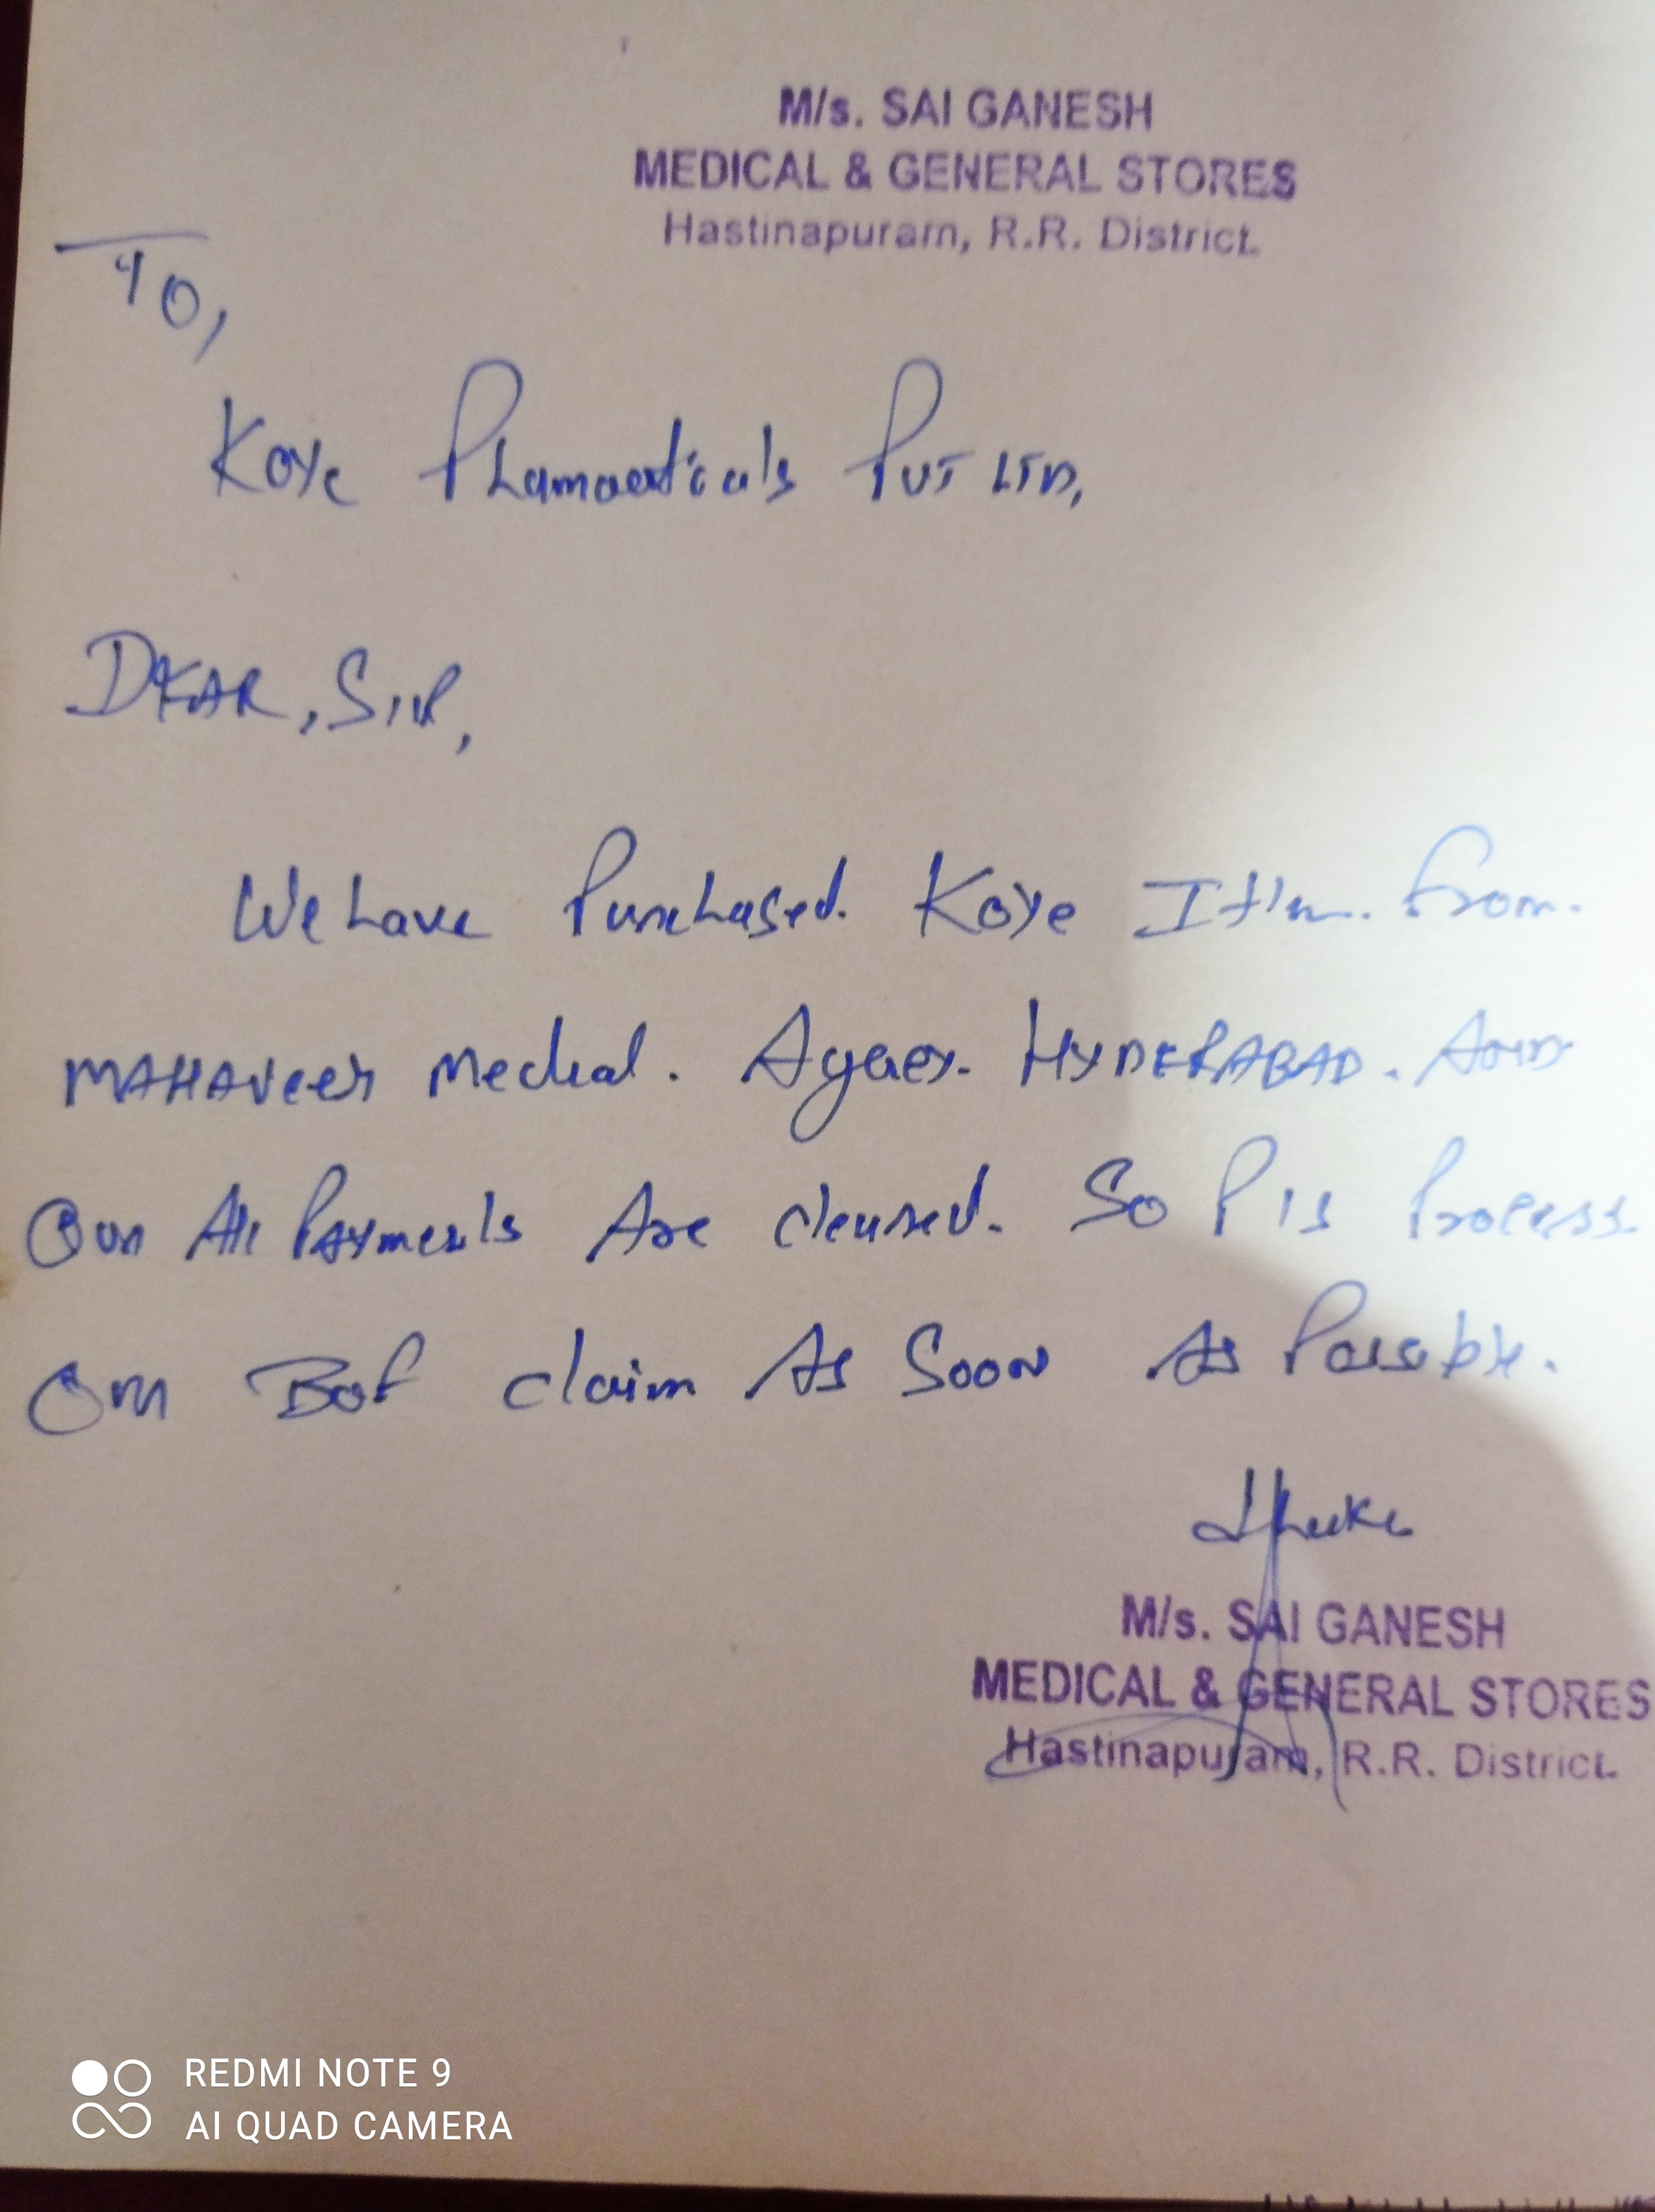 M/s. SAI GANESH
MEDICAL & GENERAL STORES
Hastinapuram, R.R. District.
To,
Koye Phamaceticals PVT LTD,
DEAR, Sir,
We have Purchased. Koye Item. from.
MAHAVeer Medical. Agency. HYDERABAD. AND
Our All Payments Are cleared. So Pls Process
Our BOF claim As Soon As Possible.
M/s. SAI GANESH
MEDICAL & GENERAL STORES
Hastinapuram, R.R. District.
REDMI NOTE 9
AI QUAD CAMERA